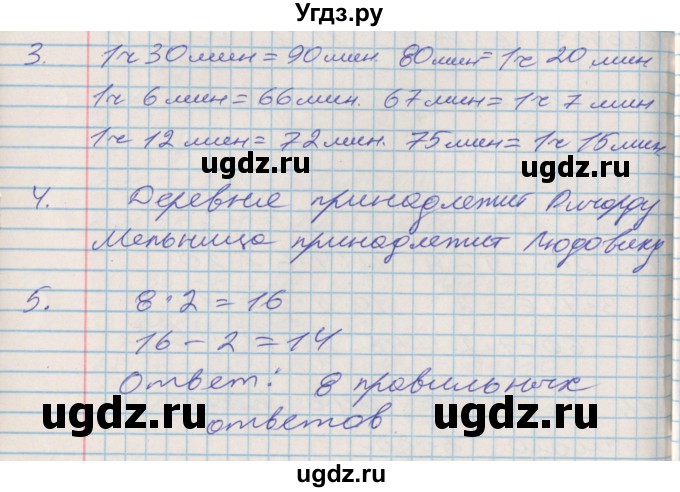 Угдз.ру
3. 1ч 30 мин = 90 мин. 80 мин = 1ч 20 мин
1ч 6 мин = 66 мин. 67 мин = 1ч 7 мин
1ч 12 мин = 72 мин. 75 мин = 1ч 15 мин
ugdz.ru ugdz.ru
4. Деревня принадлежит Ричарду
Мельница принадлежит Людовику
5. 8 · 2 = 16
16 - 2 = 14
Ответ: 8 правильных
ugdz.ru ugdz.ru
ответов
ugdz.ru